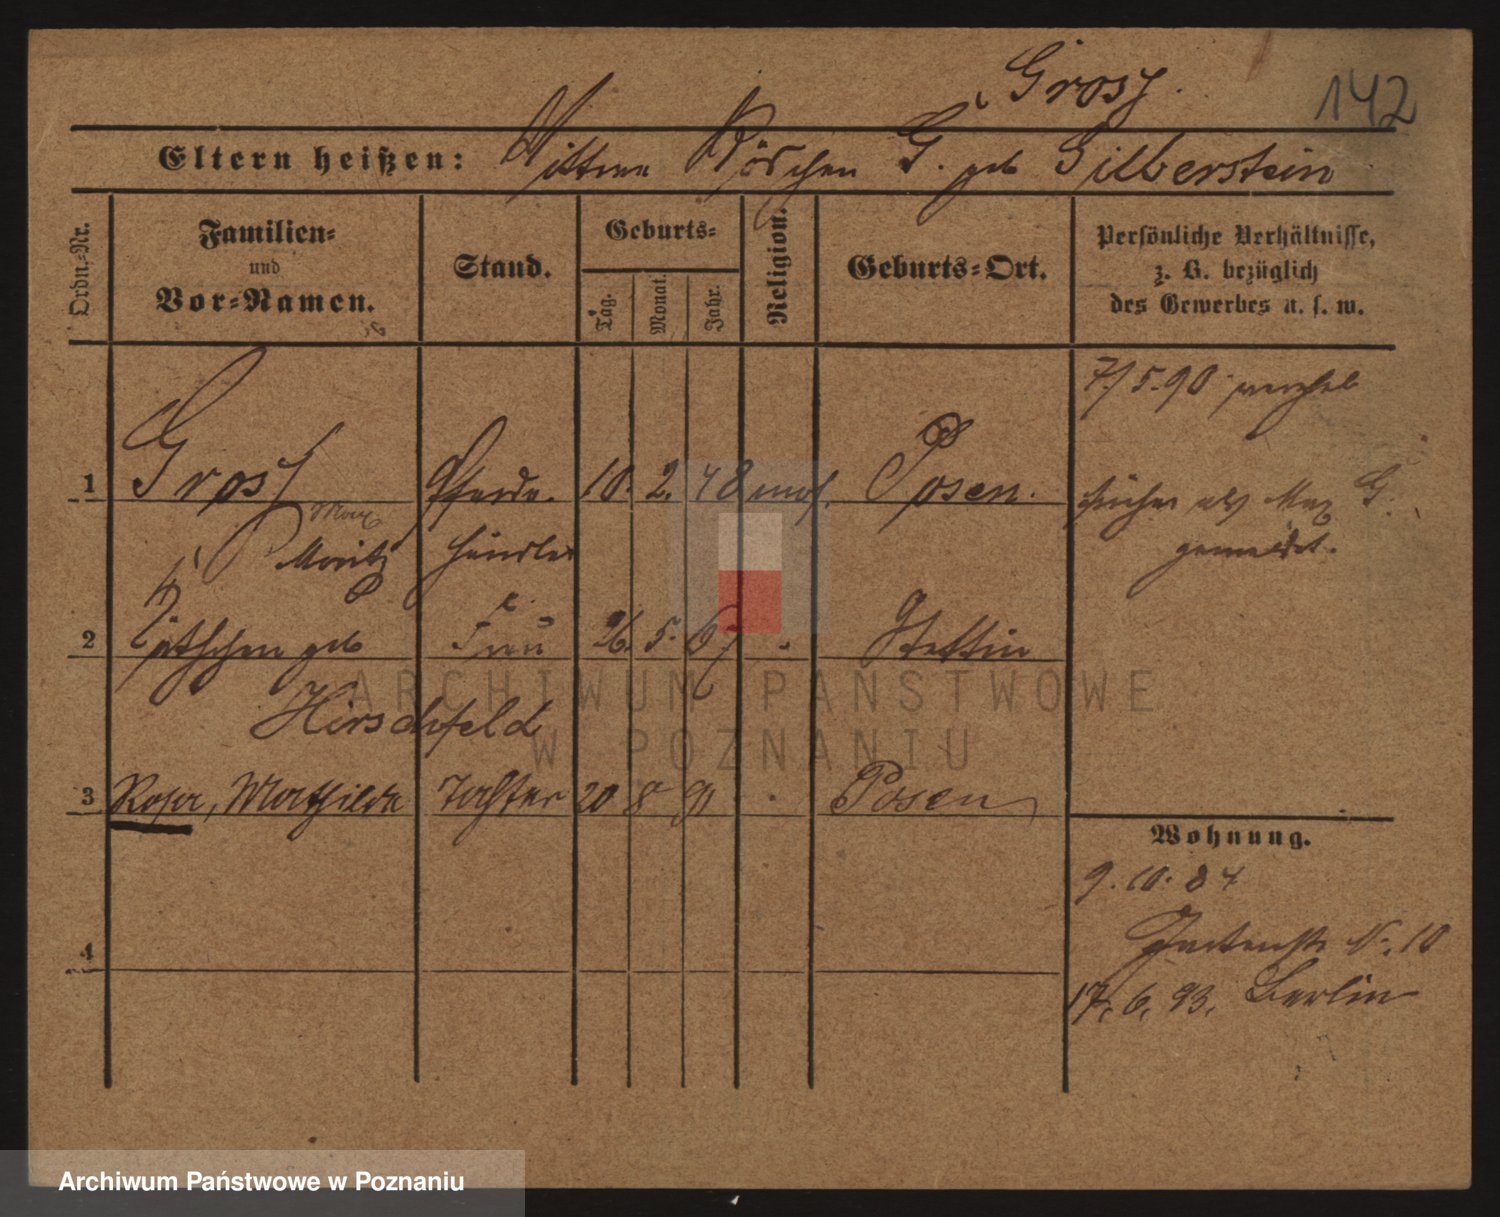 Grosz.
142
Eltern heißen: Röschen G. geb Silberstein
Ordn.-Nr.
Familien-
und
Vor-Namen.
Stand.
Geburts-
Tag.
Monat.
Jahr.
Religion.
Geburts-Ort.
Persönliche Verhältnisse,
z. B. bezüglich
des Gewerbes u. s. w.
7/5.90
1 Grosz Pferde- 10. 2. 48 mos. Posen. früher als Max G.
Max
Moritz händler gemeldet.
2 geb Frau 26. 5. 67 Stettin
Hirschfeld
3 Rosa, Mathilde Tochter 20 8 91 Posen
Wohnung.
9. 10. 84
4
N. 10
17. 6. 93. Berlin
ARCHIWUM PAŃSTWOWE
W POZNANIU
Archiwum Państwowe w Poznaniu